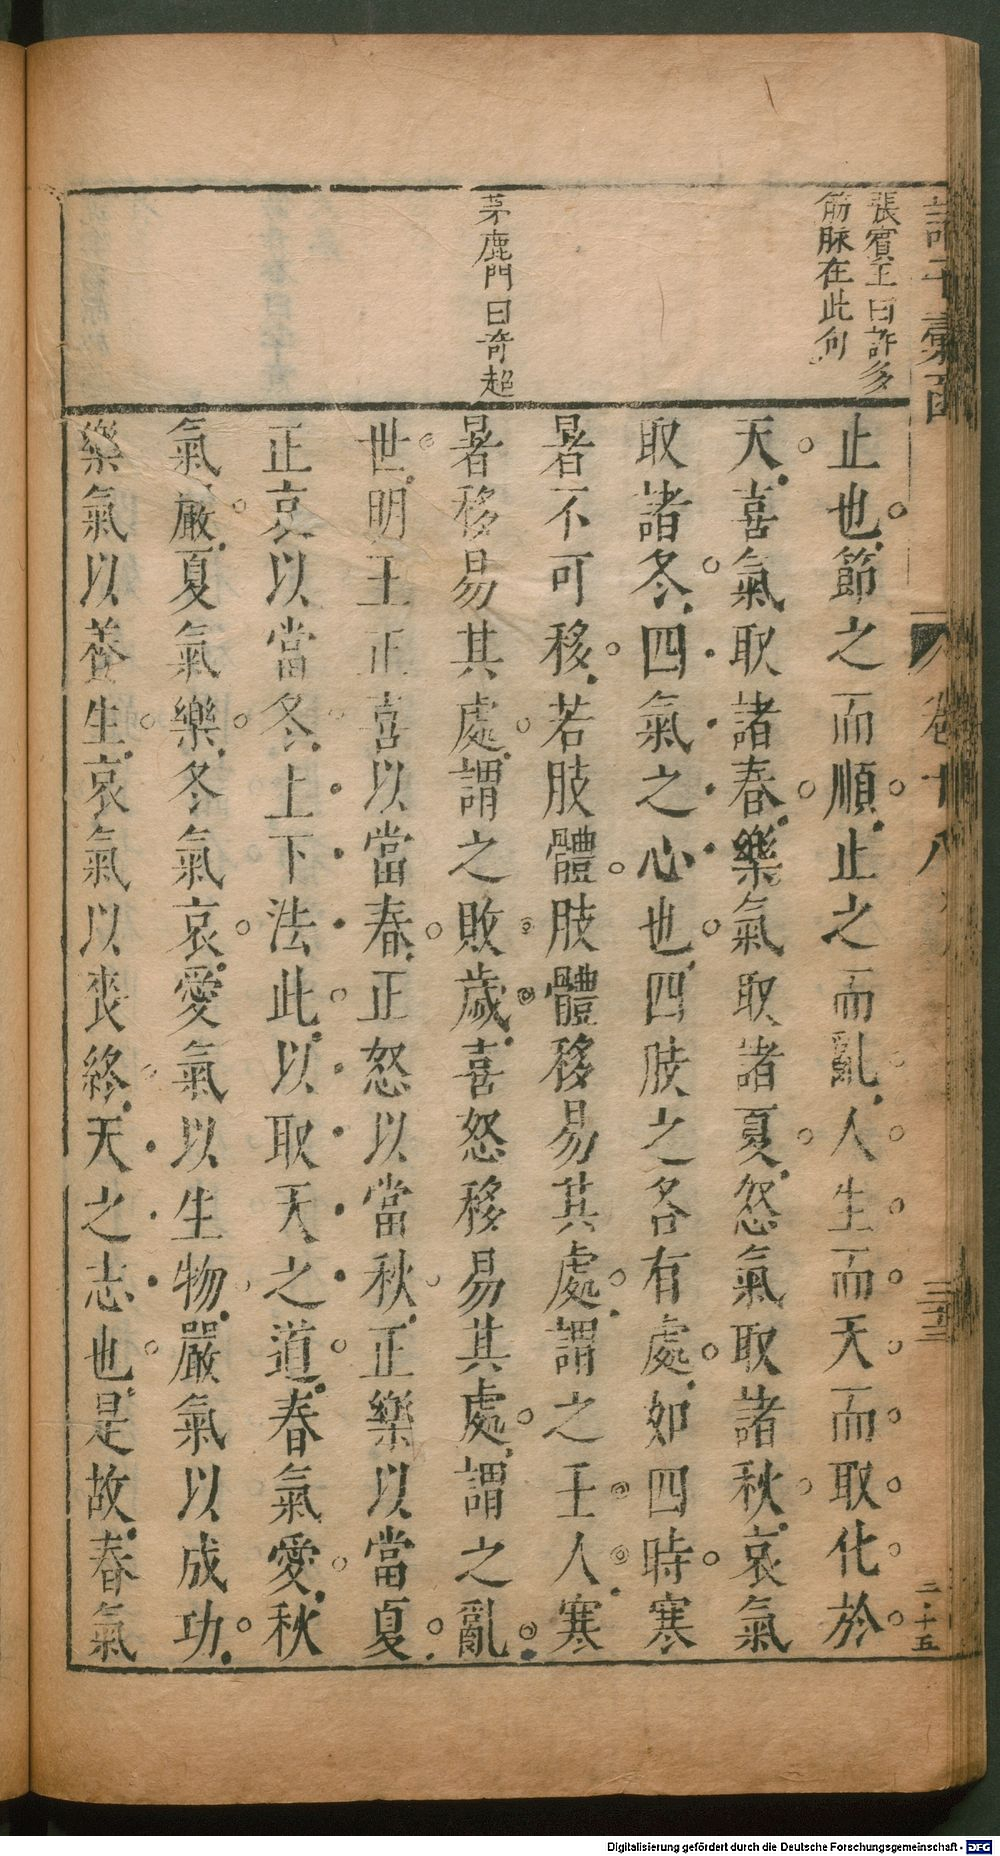 張賓王曰許多
筋脉在此句
茅鹿門曰奇超
止也節之而順止之而亂人生而天而取化於
天喜氣取諸春樂氣取諸夏怒氣取諸秋哀氣
取諸冬四氣之心也四肢之各有處如四時寒
暑不可移若肢體肢體移易其處謂之王人寒
暑移易其處謂之敗歲喜怒移易其處謂之亂
世明王正喜以當春正怒以當秋正樂以當夏
正哀以當冬上下法此以取天之道春氣愛秋
氣嚴夏氣樂冬氣哀愛氣以生物嚴氣以成功
樂氣以養生哀氣以喪終天之志也是故春氣
卷十八
二十五
Digitalisierung gefördert durch die Deutsche Forschungsgemeinschaft - DFG